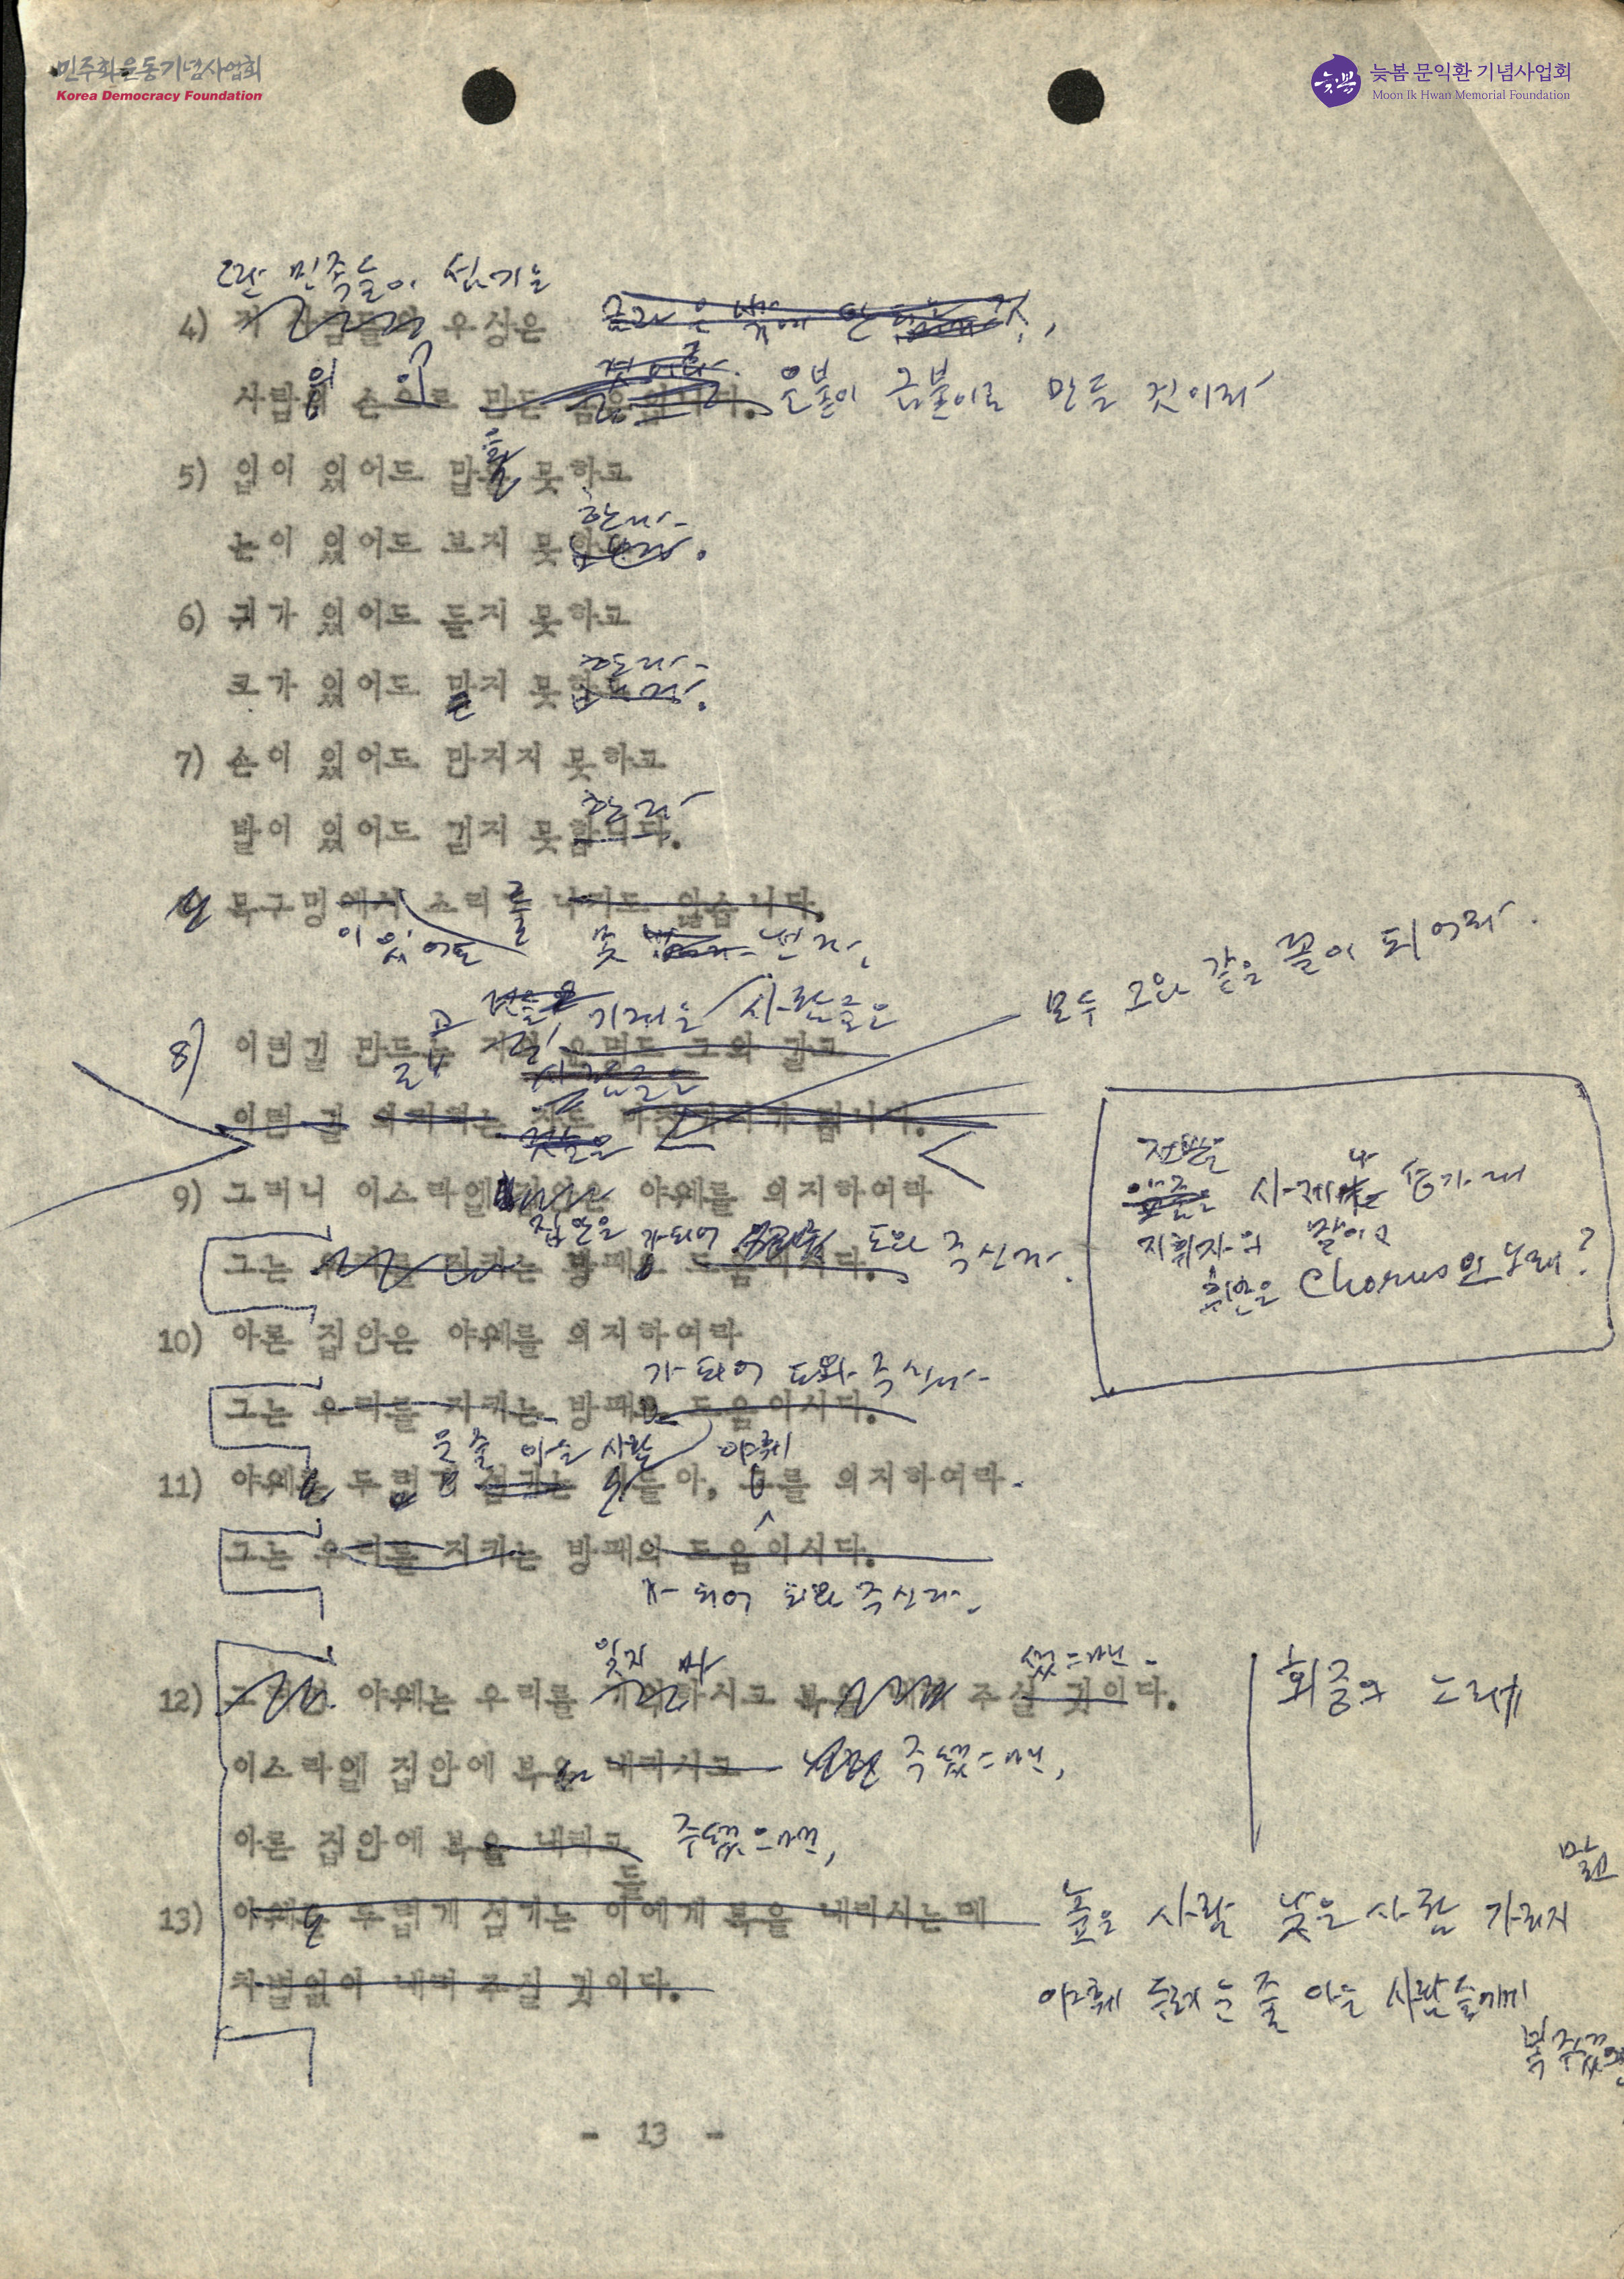 민주화운동기념사업회
Korea Democracy Foundation
늦봄 문익환 기념사업회
Moon Ik Hwan Memorial Foundation
딴 민족들이 섬기는
4) 저 사람들의 우상은
사람의 손으로 만든
은붙이 금붙이로 만든 것이라
5) 입이 있어도 말을 못하고
한다.
눈이 있어도 보지 못
6) 귀가 있어도 듣지 못하고
한다.
코가 있어도 맡지 못
7) 손이 있어도 만지지 못하고
한다
발이 있어도 걷지 못합니다.
목구멍에서 소리를 나지도 않습니다.
이 있어도 못 낸다.
모두 그와 같은 꼴이 되어라.
기대는 사람들은
8) 이런걸 만드는 자와 우멍도 그와 같고
이런 걸 의지하는 자도 마찬가지가 됩니다.
것들은
9) 그러니 이스라엘 집안은 야웨를 의지하여라
집안은 가 되어 도와 주신다.
그는 우리를 지키는 방패요 도움이시다.
전반은
사제나 승가대
지휘자의 말이고
후반은 Chorus의 노래?
10) 아론 집안은 야웨를 의지하여라
가 되어 도와 주신다.
그는 우리를 지키는 방패요 도움이시다.
운 줄 아는 사람 야훼
11) 야웨를 두렵게 섬기는 이들아, 그를 의지하여라.
그는 우리를 지키는 방패요 도움이시다.
가 되어 도와 주신다.
잊지 마
12) 야웨는 우리를 기억하시고 복을 내려 주실 것이다.
회중의 노래
이스라엘 집안에 복을 내리시고
아론 집안에 복을 내리고
들
13) 야웨를 두렵게 섬기는 이에게 복을 내리시는데
높은 사람 낮은 사람 가리지
말고
차별없이 내려 주실 것이다.
야훼 두려운 줄 아는 사람들에게
- 13 -